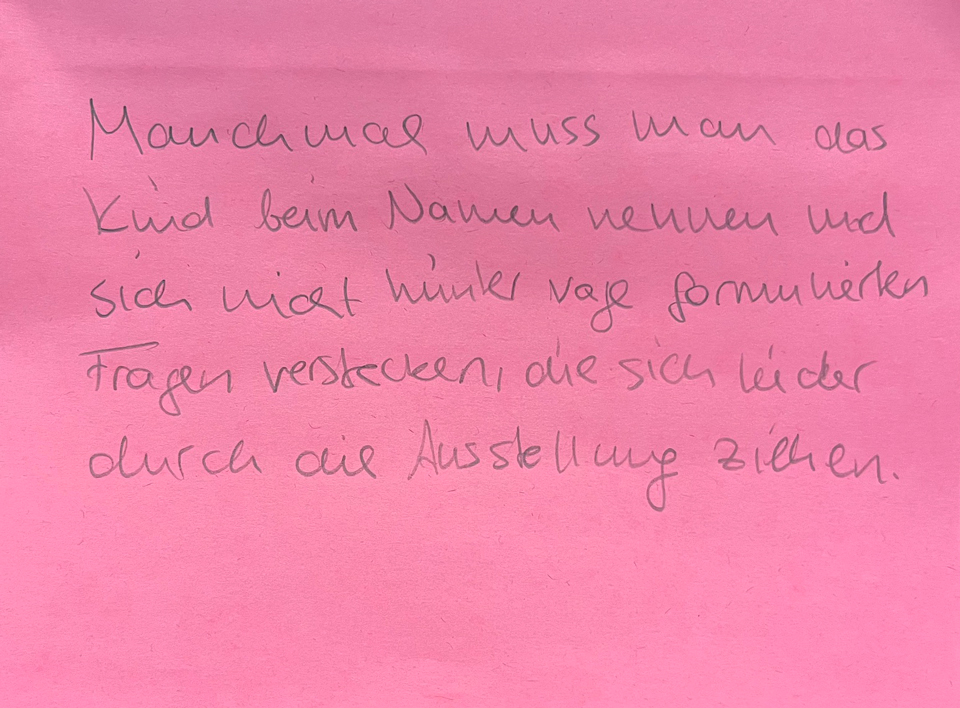 Manchmal muss man das
Kind beim Namen nennen und
sich nicht hinter vage formulierten
Fragen verstecken, die sich leider
durch die Ausstellung ziehen.